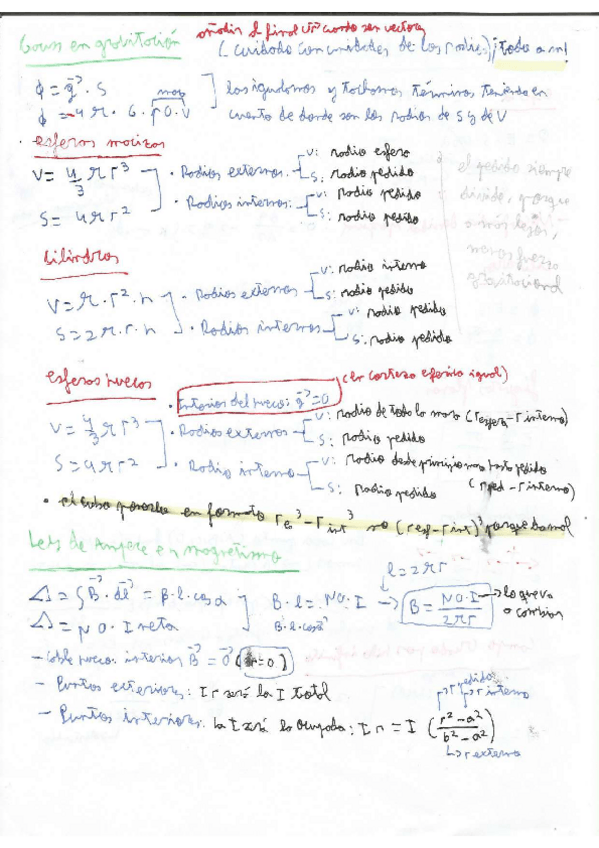 añadir al final ūr cuando sea vectores
Gauss en gravitación (cuidado con unidades de los radios) ¡todo a m!
ϕ = g⃗ · S masa las igualamos y tachamos términos teniendo en
ϕ = -4π · G · ρ · V cuenta de donde son los radios de S y de V
· esferas macizas
V = 4/3 π r³ · Radios externos: V: radio esfera
S: radio pedido
S = 4π r² · Radios internos: V: Radio pedido
S: radio pedido
el pedido siempre
divide, porque
a más lejos,
menos fuerza
gravitacional
Cilindros
V = π · r² · h · Radios externos V: radio interno
S: radio pedido
S = 2π · r · h · Radios internos V: radio pedido
S: radio pedido
esferas huecas · Interior del hueco: g⃗ = 0 (en corteza esférica igual)
V = 4/3 π r³ · Radios externos V: radio de toda la masa (r esfera - r interno)
S: radio pedido
S = 4π r² · Radio interno V: Radio desde principio masa hasta pedido
(r ped - r interno)
S: Radio pedido
· el cubo ponerlo en formato re³ - r int³ no (r esf - r int)³ porque da mal
Ley de Ampere en magnetismo
l = 2π r
Δ = ∫ B⃗ · dl⃗ = B · l · cos α B · l = μ0 · I → B = μ0 · I / 2π r → lo que va
a cambiar
Δ = μ0 · I neta B · l · cos α
- Cable hueco: interior B⃗ = 0⃗ (I = 0)
- Puntos exteriores: Ir será la I total
- Puntos interiores: la I será la ocupada: Ir = I (r² - a² / b² - a²)
r pedido
r interno
r externo